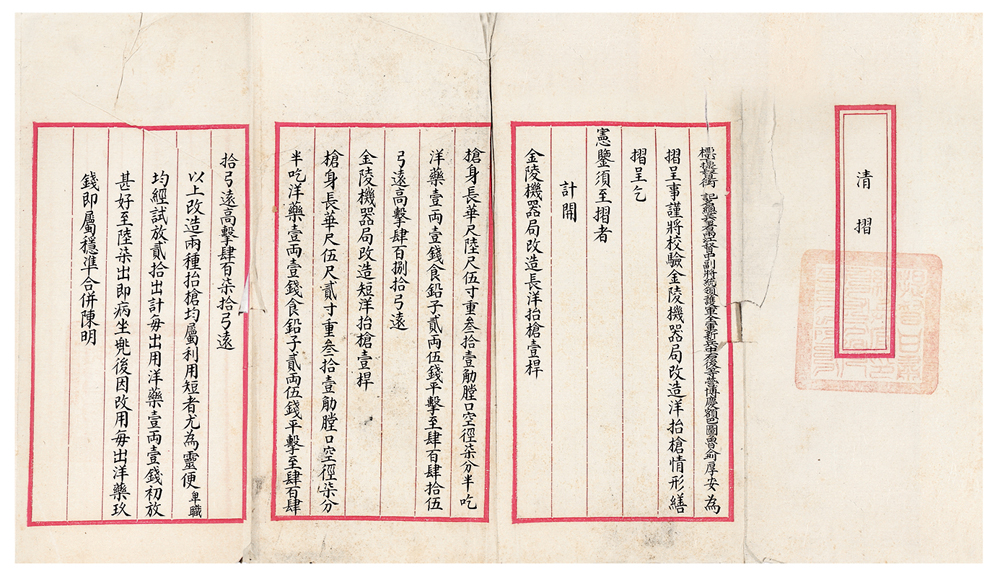 清摺
記名總兵署兩江督中副將統領護軍全軍新兵中右後等營博慶額巴圖魯俞厚安為
摺呈事謹將校驗金陵機器局改造洋抬槍情形繕
摺呈乞
憲鑒須至摺者
計開
金陵機器局改造長洋抬槍壹桿
槍身長華尺陸尺伍寸重叁拾壹觔膛口空徑柒分半吃
洋藥壹兩壹錢食鉛子貳兩伍錢平擊至肆百肆拾伍
弓遠高擊肆百捌拾弓遠
金陵機器局改造短洋抬槍壹桿
槍身長華尺伍尺貳寸重叁拾壹觔膛口空徑柒分
半吃洋藥壹兩壹錢食鉛子貳兩伍錢平擊至肆百肆
拾弓遠高擊肆百柒拾弓遠
以上改造兩種抬槍均屬利用短者尤為靈便卑職
均經試放貳拾出計每出用洋藥壹兩壹錢初放
甚好至陸柒出即病坐兠後因改用每出洋藥玖
錢即屬穩準合併陳明